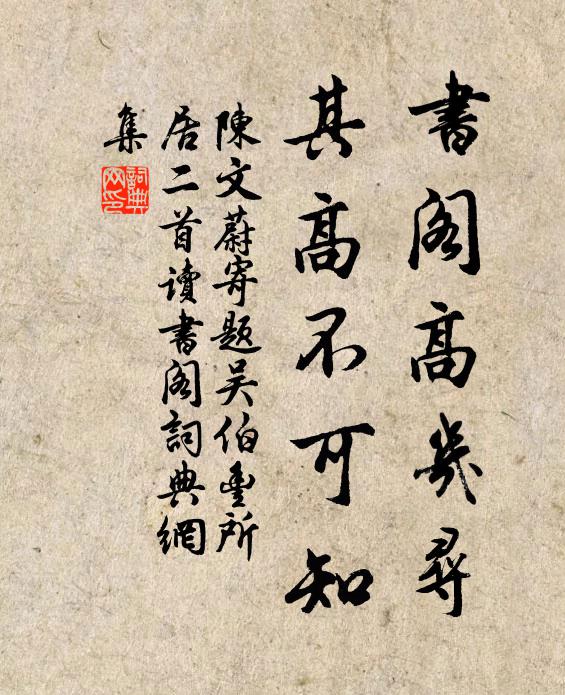 書閣高幾尋
其高不可知
陳文蔚寄題吴伯豐所
居二首讀書閣詞典網
集
詞典网印